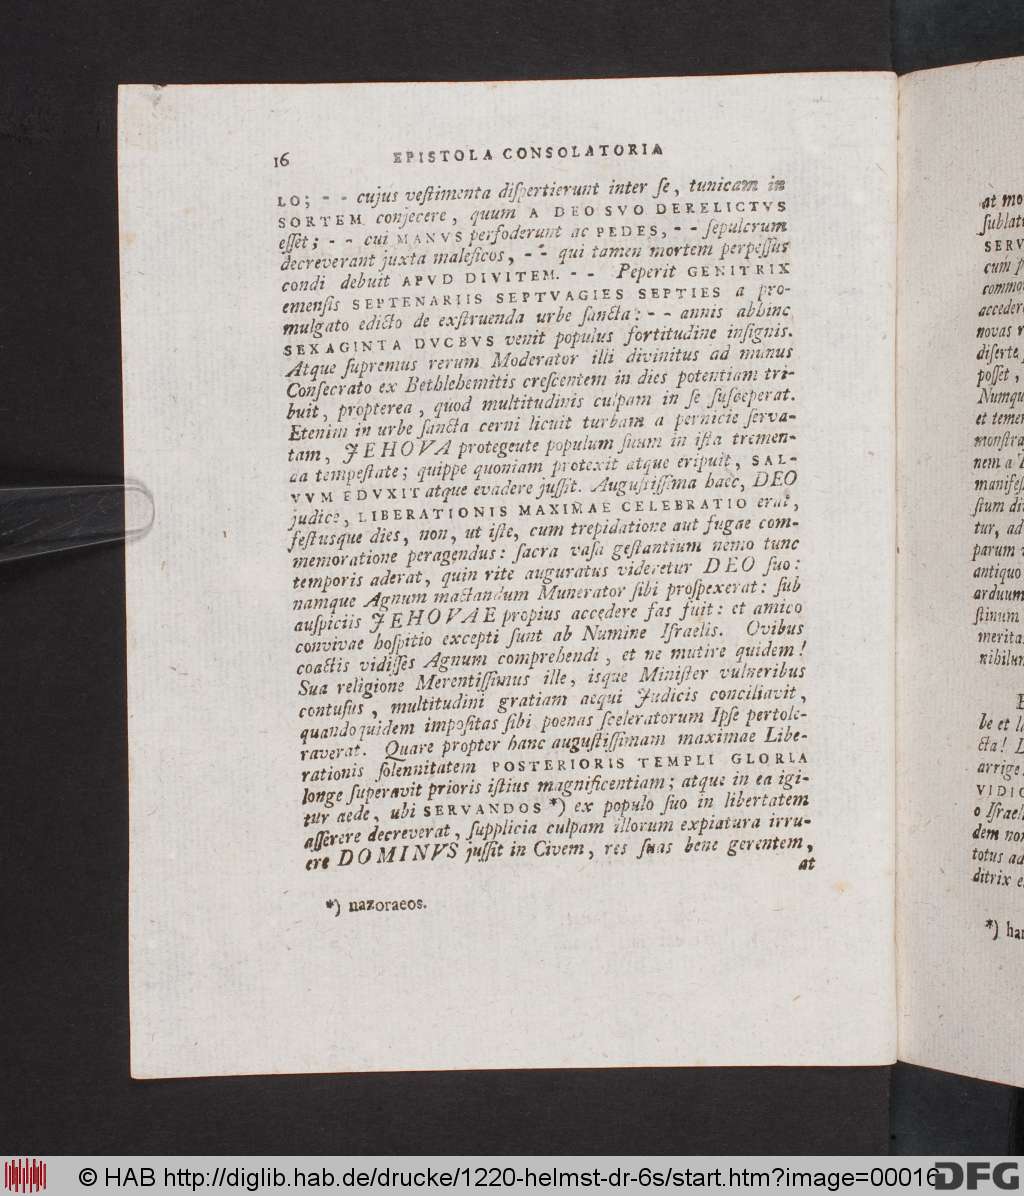 16 EPISTOLA CONSOLATORIA
LO; - - cujus veſtimenta diſpertierunt inter ſe, tunicam in
SORTEM conjecere, quum A DEO SVO DERELICTVS
eſſet; - - cui MANVS perfoderunt ac PEDES, - - ſepulcrum
decreverant juxta maleficos, - - qui tamen mortem perpeſſus
condi debuit APVD DIVITEM. - - Peperit GENITRIX
emenſis SEPTENARIIS SEPTVAGIES SEPTIES a pro-
mulgato edicto de exſtruenda urbe ſancta: - - annis abhinc
SEXAGINTA DVCBVS venit populus fortitudine inſignis.
Atque ſupremus rerum Moderator illi divinitus ad munus
Conſecrato ex Bethlehemitis creſcentem in dies potentiam tri-
buit, propterea, quod multitudinis culpam in ſe ſuſceperat.
Etenim in urbe ſancta cerni licuit turbam a pernicie ſerva-
tam, JEHOVA protegente populum ſuum in iſta tremen-
da tempeſtate; quippe quoniam protexit atque eripuit, SAL-
VVM EDVXIT atque evadere juſſit. Auguſtiſſima haec, DEO
judice, LIBERATIONIS MAXIMAE CELEBRATIO erat,
feſtusque dies, non, ut iſte, cum trepidatione aut fugae com-
memoratione peragendus: ſacra vaſa geſtantium nemo tunc
temporis aderat, quin rite auguratus videretur DEO ſuo:
namque Agnum mactandum Munerator ſibi proſpexerat: ſub
auſpiciis JEHOVAE propius accedere fas fuit: et amico
convivae hoſpitio excepti ſunt ab Numine Iſraelis. Ovibus
coactis vidiſſes Agnum comprehendi, et ne mutire quidem!
Sua religione Merentiſſimus ille, isque Miniſter vulneribus
contuſus, multitudini gratiam aequi Judicis conciliavit,
quandoquidem impoſitas ſibi poenas ſceleratorum Ipſe pertole-
raverat. Quare propter hanc auguſtiſſimam maximae Libe-
rationis ſolennitatem POSTERIORIS TEMPLI GLORIA
longe ſuperavit prioris iſtius magnificentiam; atque in ea igi-
tur aede, ubi SERVANDOS *) ex populo ſuo in libertatem
aſſerere decreverat, ſupplicia culpam illorum expiatura irru-
ere DOMINVS juſſit in Civem, res ſuas bene gerentem,
at
*) nazoraeos.
at mo
ſublat
SERV
cum p
commo
acceder
novas r
diſerte
poſſet,
Numqu
et temer
monſtra
nem a
manifeſ
ſtum di
tur, ad
parum
antiquo
arduum
ſtinum
merita
nihilum
le et l
cta!
arrige
VIDI
o Iſrael
dem non
totus ad
ditrix e
*) ha
© HAB http://diglib.hab.de/drucke/1220-helmst-dr-6s/start.htm?image=00016
DFG